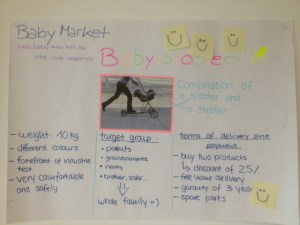 Baby Market
Baby Scooter
Combination of
a scooter and
a stroller
- weight: 10 kg
- different colours
- forefront of industrie
test
- very comfortable
and safely
target group:
- parents
- grandparents
- nanny
- brother, sister...
whole family =)
terms of delivery and
payment
- buy two products
discount of 25%
- free home delivery
- garanty of 3 years
- spare parts